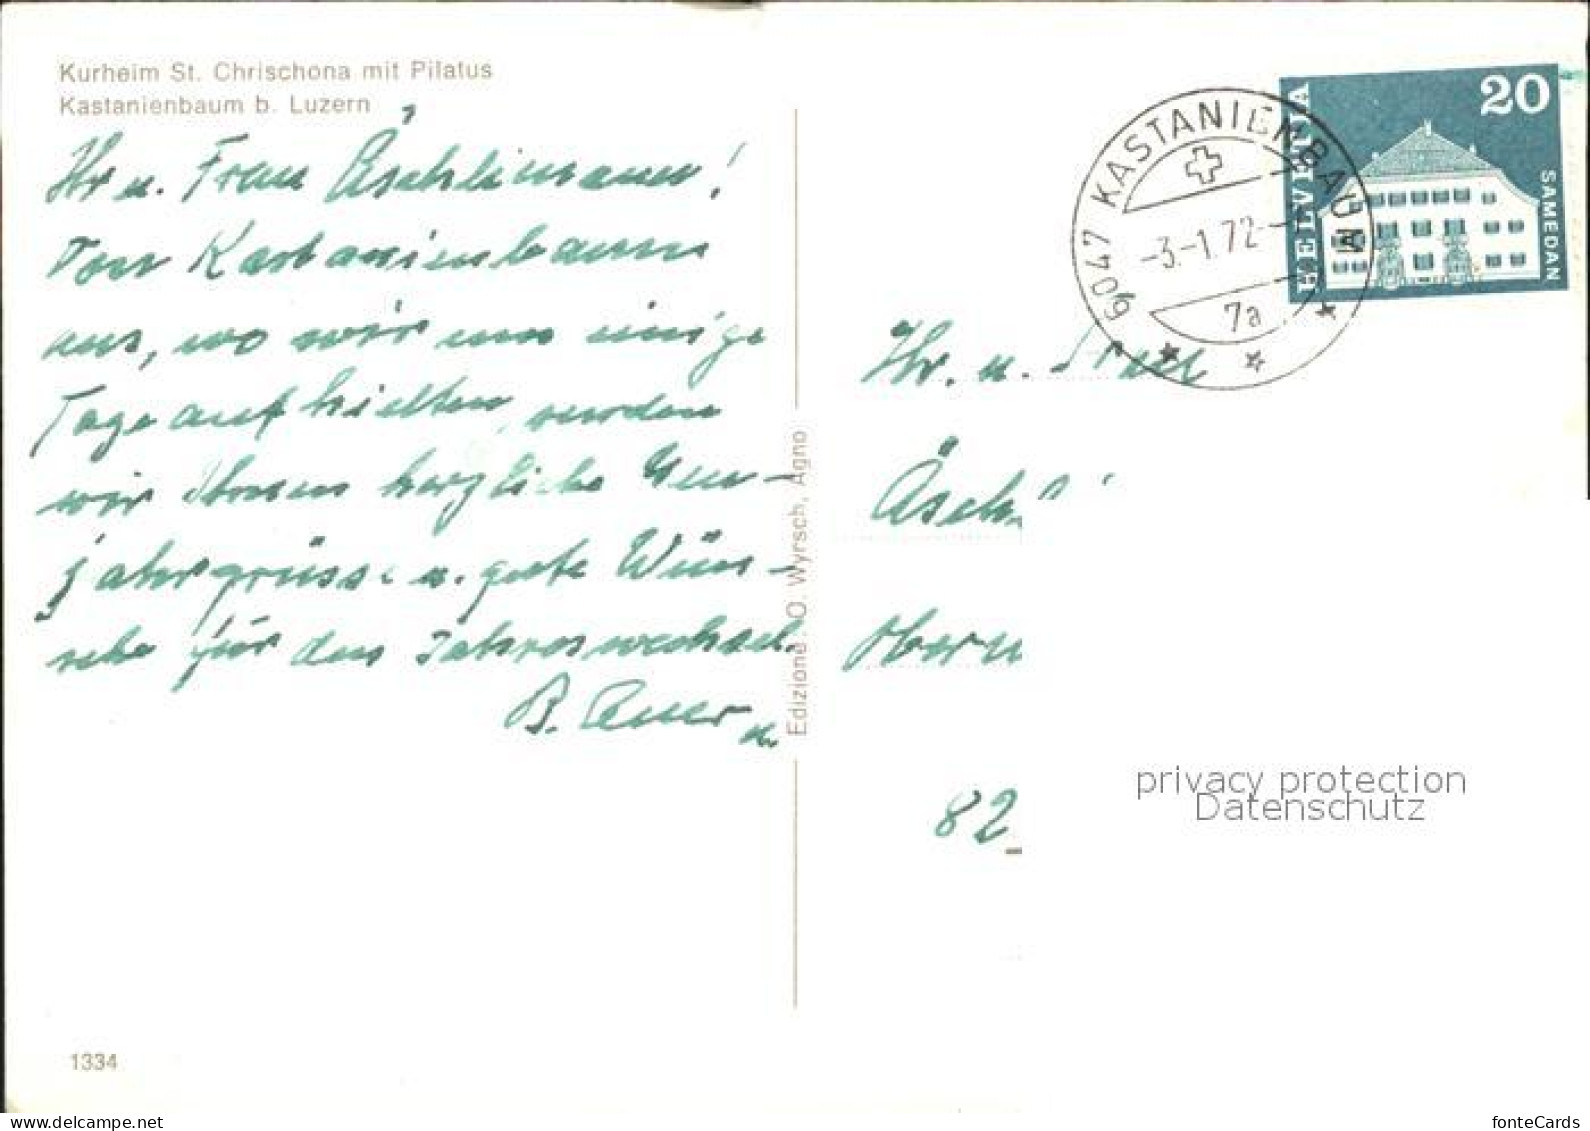 Kurheim St. Chrischona mit Pilatus
Kastanienbaum b. Luzern
Hr u. Frau Äschlimann!
Von Kastanienbaum
aus, wo wir uns einige
Tage aufhielten, senden
wir Ihnen herzliche Neu-
jahrgrüsse u. gute Wün-
sche für den Jahreswechsel.
B. Auer u.
1334
Edizione: O. Wyrsch, Agno
6047 KASTANIENBAUM
-3.-1.72-
7a
HELVETIA
20
SAMEDAN
Hr. u. Frau
Äschl
82
privacy protection
Datenschutz
www.delcampe.net
fonteCards